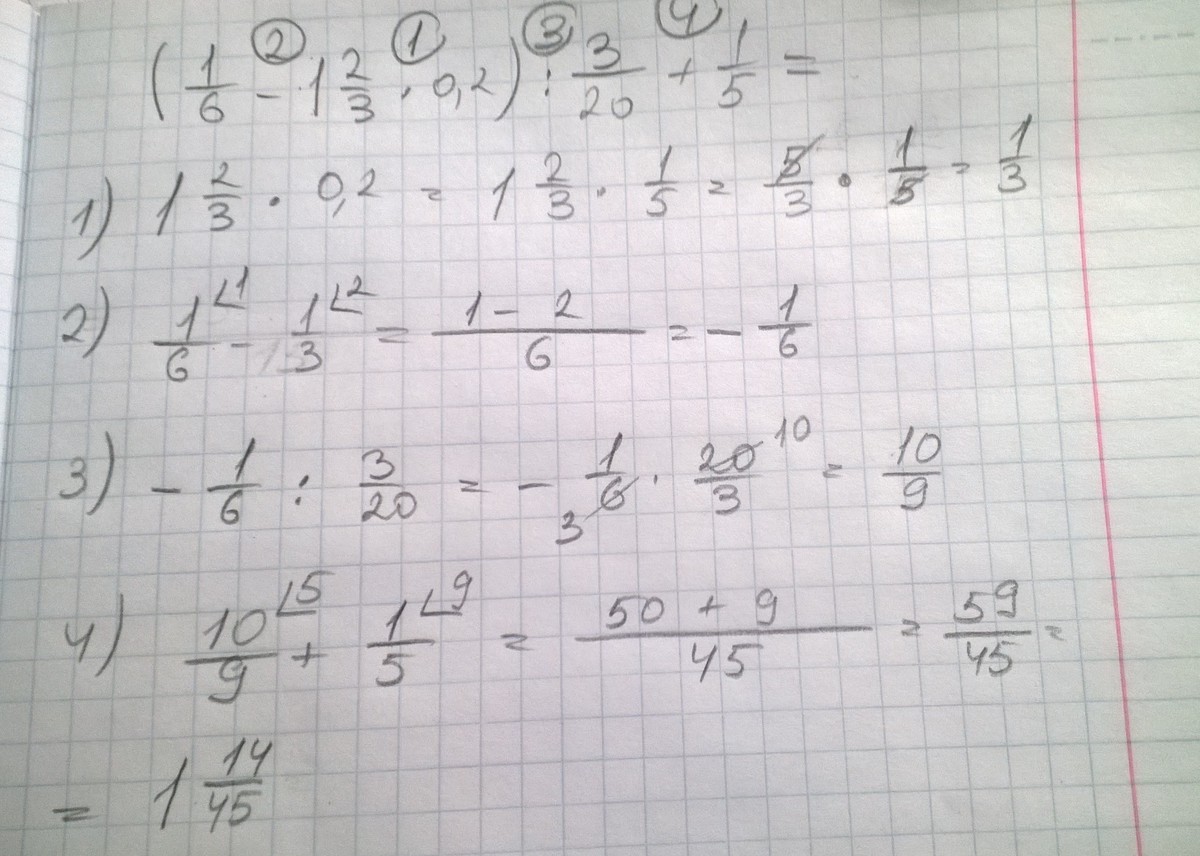 (1/6 - 1 2/3 · 0,2) : 3/20 + 1/5 =
② ① ③ ④
1) 1 2/3 · 0,2 = 1 2/3 · 1/5 = 5/3 · 1/5 = 1/3
2) 1/6 ∟1 - 1/3 ∟2 = (1 - 2)/6 = - 1/6
3) - 1/6 : 3/20 = - 1/6 3 · 20/3 10 = 10/9
4) 10/9 ∟5 + 1/5 ∟9 = (50 + 9)/45 = 59/45 =
= 1 14/45